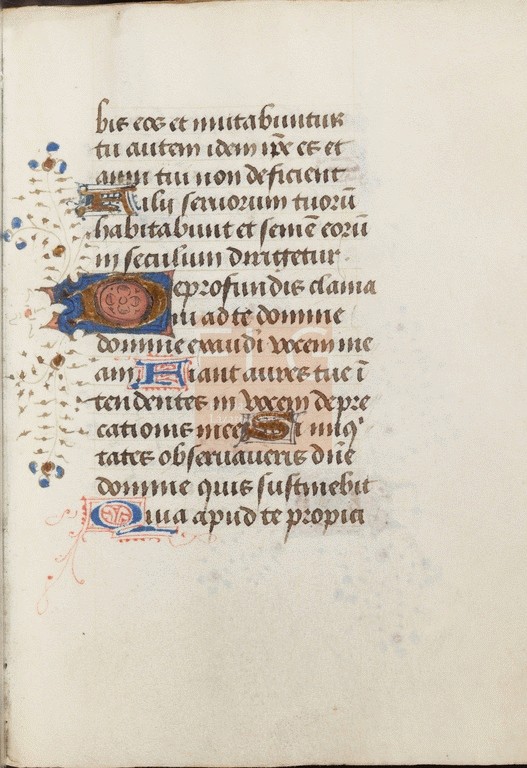 bis eos et mutabuntur
tu autem idem ip̄e es et
anni tui non deficient
Filij seruorum tuorū
habitabunt et semē eorū
in seculum dirigetur
De profundis clama
ui ad te domine
domine exaudi vocem me
am Fiant aures tue ī
tendentes in vocem depre
cationis mee Si iniq̄
tates obseruaueris dn̄e
domine quis sustinebit
Quia apud te propici